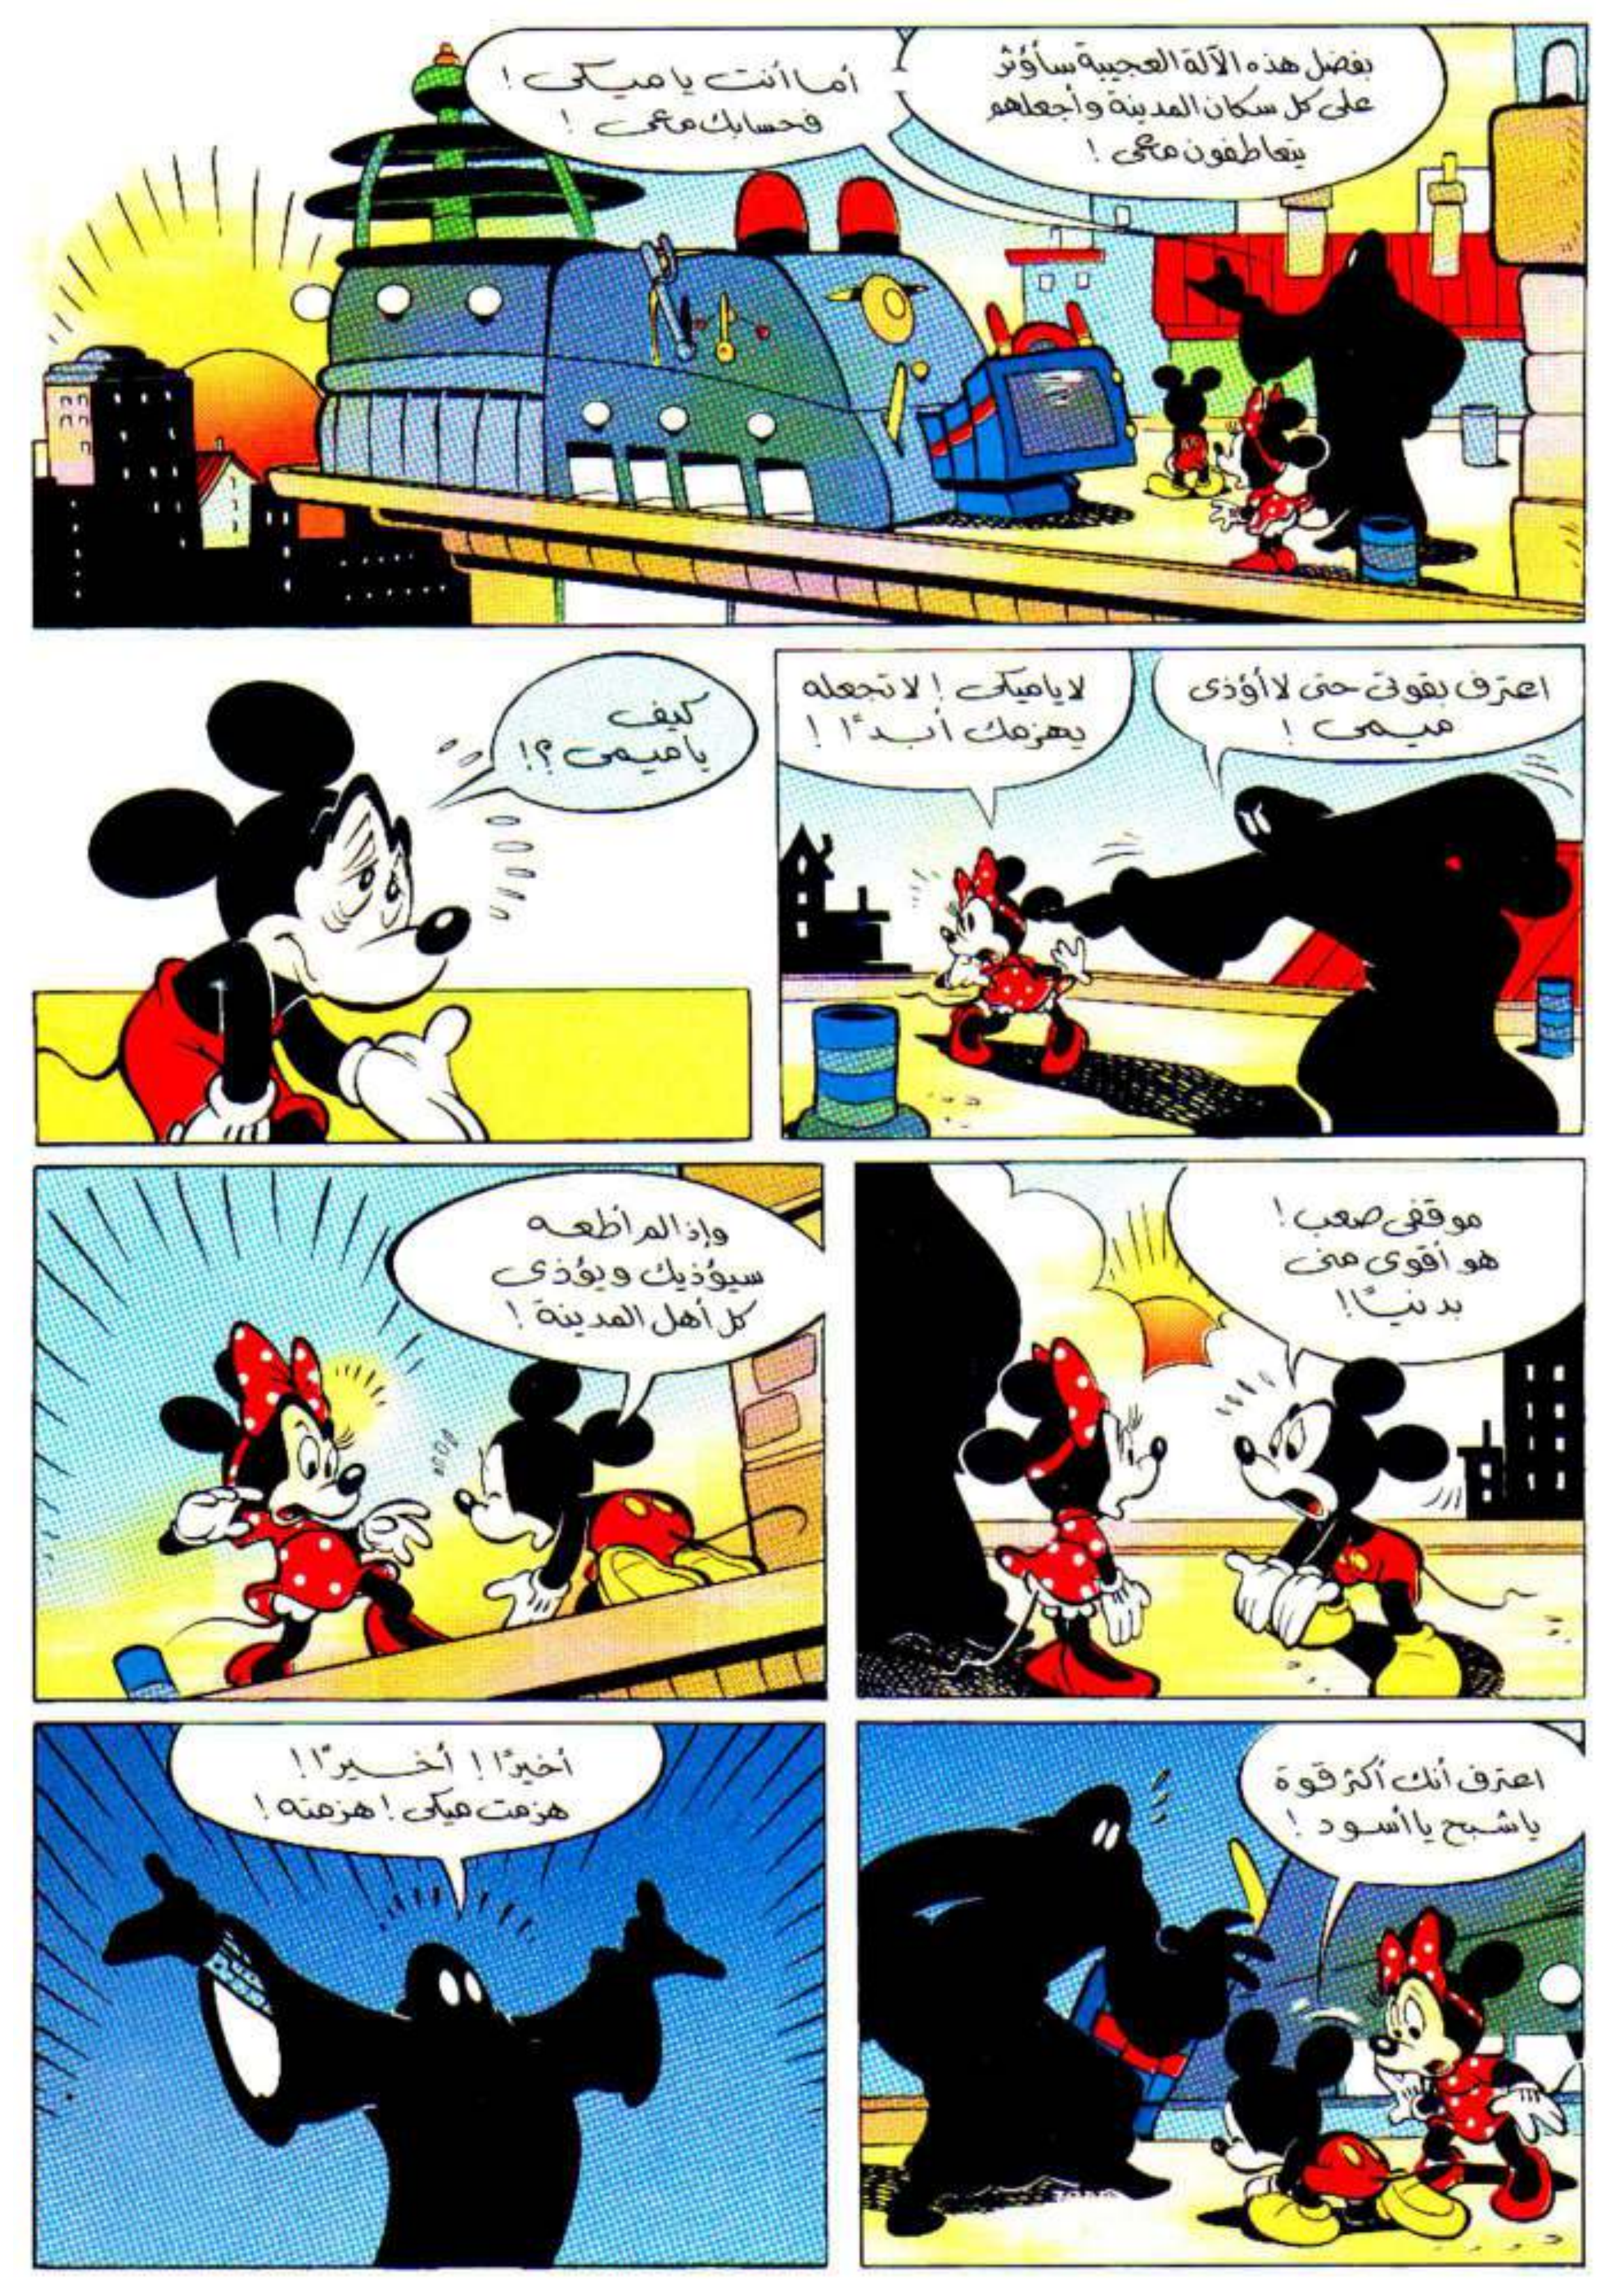 بفضل هذه الآلة العجيبة سأؤثر
على كل سكان المدينة وأجعلهم
يتعاطفون معى !
أما أنت يا ميكى !
فحسابك معى !
اعترف بقوتى حتى لا أؤذى
ميمى !
لا يا ميكى ! لا تجعله
يهزمك أبدًا !
كيف
يا ميمى ؟!
موقفى صعب !
هو أقوى منى
بدنيًا !
وإذا لم أطعه
سيؤذيك ويؤذى
كل أهل المدينة !
اعترف أنك أكثر قوة
يا شبح يا أسود !
أخيرًا ! أخيرًا !
هزمت ميكى ! هزمته !